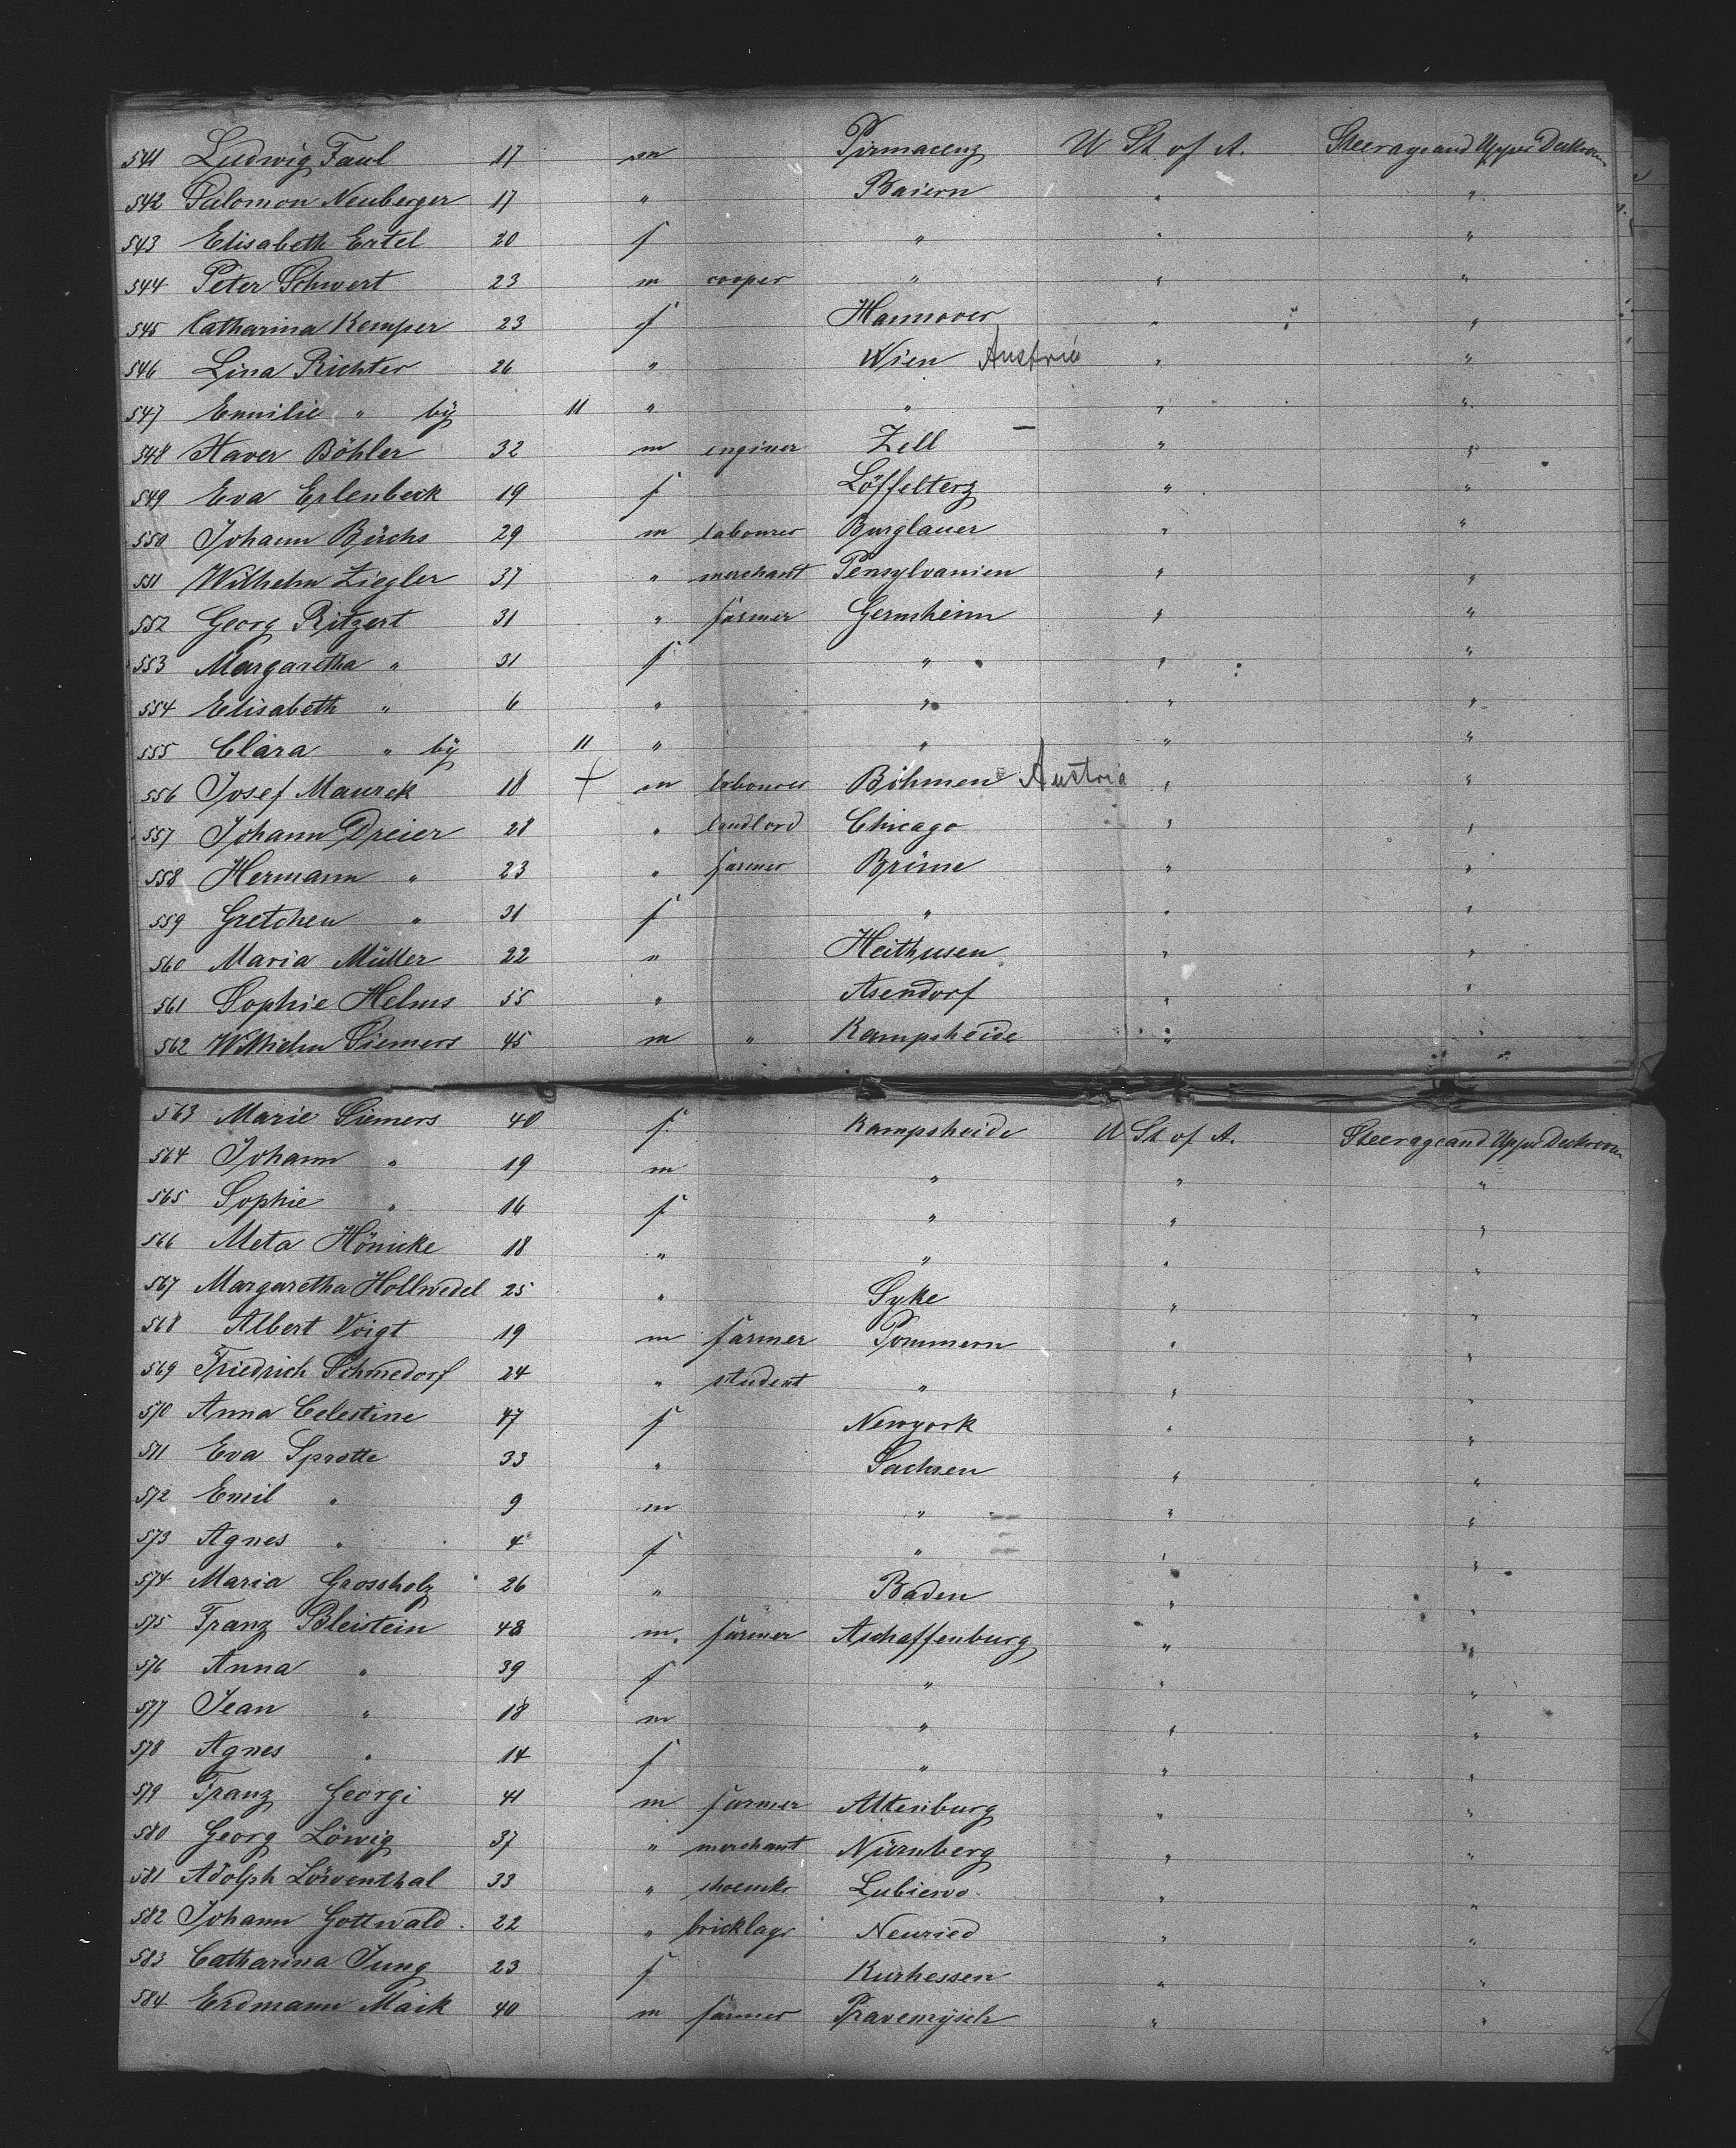 541 Ludwig Faul 17 m Pirmacenz U St. of A. Steerage and Upper Deckroom
542 Salomon Neuberger 17 " Baiern " "
543 Elisabeth Ertel 20 f " " "
544 Peter Schwert 23 m cooper " " "
545 Catharina Kemper 23 f Hannover " "
546 Lina Richter 26 " Wien Austria " "
547 Emilie " by 11 " " " "
548 Xaver Böhler 32 m enginer Zell " "
549 Eva Erlenbeck 19 f Löffelterz " "
550 Johann Büchs 29 m labourer Burglauer " "
551 Wilhelm Ziegler 37 " merchant Pensylvanien " "
552 Georg Ritzert 31 " farmer Gernsheim " "
553 Margaretha " 31 f " " "
554 Elisabeth " 6 " " " "
555 Clara " by 11 " " " "
556 Josef Maurek 18 + m labourer Böhmen Austria " "
557 Johann Dreier 28 " landlord Chicago " "
558 Hermann " 23 " farmer Brüne " "
559 Gretchen " 31 f " " "
560 Maria Müller 22 " Heithusen " "
561 Sophie Helms 55 " Asendorf " "
562 Wilhelm Siemers 45 m " Kampsheide " "
563 Marie Siemers 40 f Kampsheide U St. of A. Steerage and Upper Deckroom
564 Johann " 19 m " " "
565 Sophie " 16 f " " "
566 Meta Hönicke 18 " " " "
567 Margaretha Hollwedel 25 " Syke " "
568 Albert Voigt 19 m farmer Pommern " "
569 Friedrich Schmedorf 24 " student " " "
570 Anna Celestine 47 f Newyork " "
571 Eva Sprotte 33 " Sachsen " "
572 Emil " 9 m " " "
573 Agnes " 4 f " " "
574 Maria Grossholz 26 " Baden " "
575 Franz Bleistein 48 m. farmer Aschaffenburg " "
576 Anna " 39 f " " "
577 Jean " 18 m " " "
578 Agnes " 14 f " " "
579 Franz Georgi 41 m farmer Altenburg " "
580 Georg Löwig 37 " merchant Nürnberg " "
581 Adolph Löwenthal 33 " shoemkr Lubiewo " "
582 Johann Gottwald 22 " bricklayr Neuried " "
583 Catharina Jung 23 f Kurhessen " "
584 Erdmann Maik 40 m farmer " "